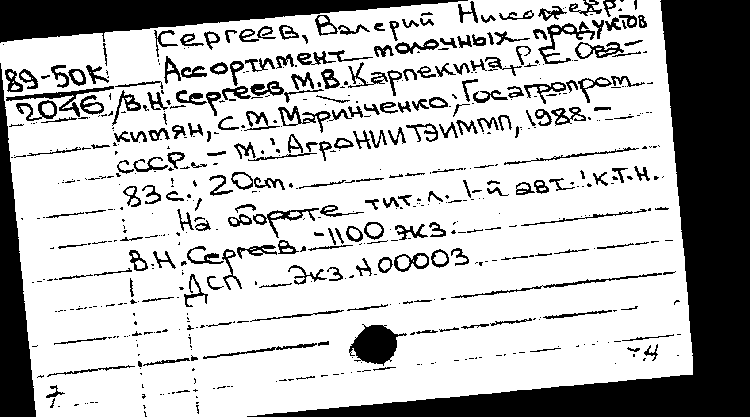 Сергеев, Валерий
Ассортимент молочных продуктов
89-50К
2046
/В.Н. Сергеев, М.В. Карпекина, Р.Е. Ова-
кимян, С.М. Маринченко; Госагропром
СССР. - М.: АгроНИИТЭИММП, 1988. -
83 с.; 20 см.
На обороте тит. л. 1-й авт.: к.т.н.
В.Н. Сергеев. - 1100 экз.
ДСП Экз. N 00003.